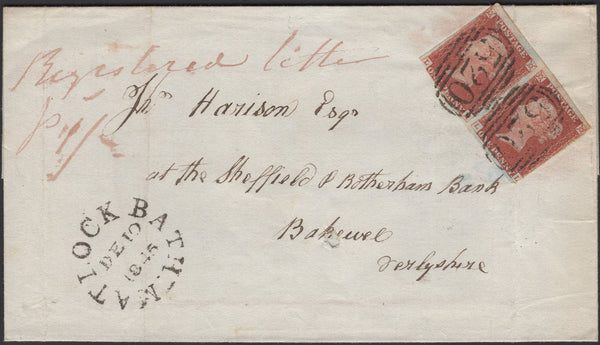 Registered letter
p 1/
Jnº Harison Esqr
at the Sheffield & Rotherham Bank
Bakewel
Derbyshire
MATLOCK BATH
DE 10
1845
POSTAGE
POSTAGE
520